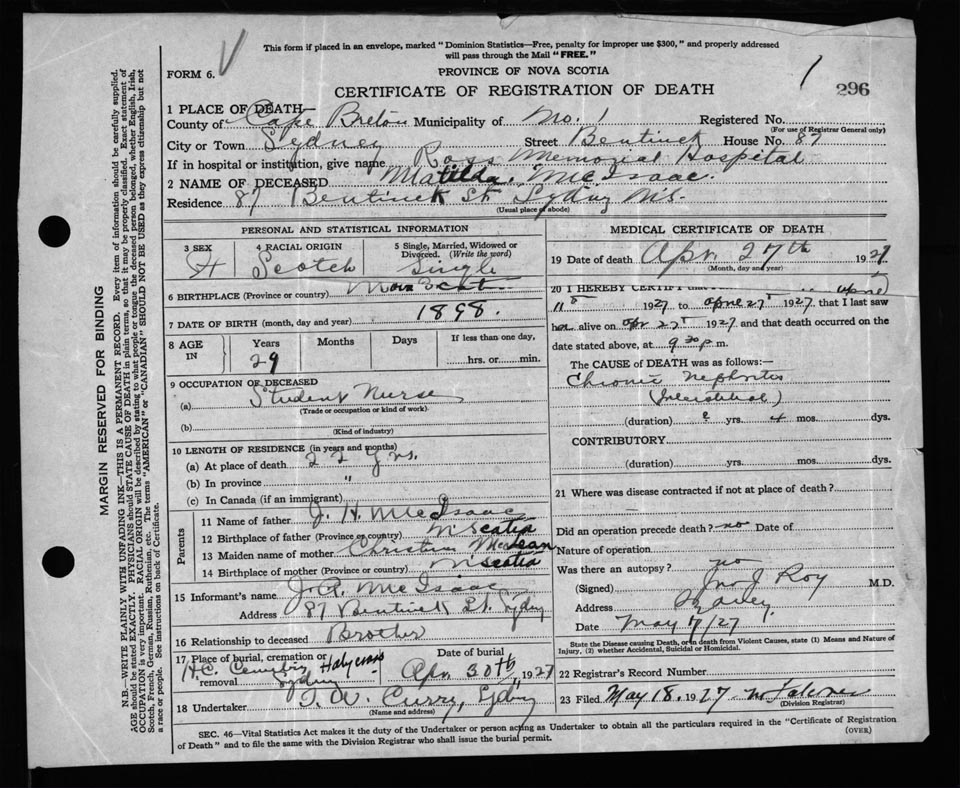 This form if placed in an envelope, marked "Dominion Statistics—Free, penalty for improper use $300," and properly addressed
will pass through the Mail "FREE."
FORM 6. V
PROVINCE OF NOVA SCOTIA
1 296
CERTIFICATE OF REGISTRATION OF DEATH
1 PLACE OF DEATH—
County of Cape Breton Municipality of No. 1 Registered No.
(For use of Registrar General only)
City or Town Sydney Street Bentinck House No. 87
If in hospital or institution, give name Ross Memorial Hospital
2 NAME OF DECEASED Matilda McIsaac.
Residence 87 Bentinck St Sydney N.S.
(Usual place of abode)
PERSONAL AND STATISTICAL INFORMATION
3 SEX 4 RACIAL ORIGIN 5 Single, Married, Widowed or
Divorced. (Write the word)
Scotch Single
6 BIRTHPLACE (Province or country) Nova Scotia
7 DATE OF BIRTH (month, day and year) 1898.
8 AGE IN Years Months Days If less than one day,
29 hrs. or min.
9 OCCUPATION OF DECEASED
(a) Student Nurse
(Trade or occupation or kind of work)
(b)
(Kind of industry)
10 LENGTH OF RESIDENCE (in years and months)
(a) At place of death 22 yrs.
(b) In province "
(c) In Canada (if an immigrant)
Parents
11 Name of father J. H. McIsaac
12 Birthplace of father (Province or country) N Scotia
13 Maiden name of mother Christina McLean
14 Birthplace of mother (Province or country) N Scotia
15 Informant's name J. A. McIsaac
Address 87 Bentinck St. Sydney
16 Relationship to deceased Brother
17 Place of burial, cremation or Date of burial
removal H.C. Cemetery Holycross Sydney Apr 30th, 1927
18 Undertaker T. W. Curry, Sydney
(Name and address)
MEDICAL CERTIFICATE OF DEATH
19 Date of death Apr. 27th 1927.
(Month, day and year)
20 I HEREBY CERTIFY that
11th 1927 to April 27th 1927, that I last saw
her alive on Apr 27th 1927 and that death occurred on the
date stated above, at 9 30 p. m.
The CAUSE OF DEATH was as follows:—
Chronic Nephritis
(Interstitial)
(duration) ? yrs. 4 mos. dys.
CONTRIBUTORY
(duration) yrs. mos. dys.
21 Where was disease contracted if not at place of death?
Did an operation precede death? no Date of
Nature of operation
Was there an autopsy? no
(Signed) Jno J. Roy M.D.
Address Sydney
Date May 7/27
State the Disease causing Death, or in death from Violent Causes, state (1) Means and Nature of
Injury, (2) whether Accidental, Suicidal or Homicidal.
22 Registrar's Record Number
23 Filed May 18. 1927
(Division Registrar)
SEC. 46—Vital Statistics Act makes it the duty of the Undertaker or person acting as Undertaker to obtain all the particulars required in the "Certificate of Registration
of Death" and to file the same with the Division Registrar who shall issue the burial permit.
(OVER)
MARGIN RESERVED FOR BINDING
N.B.—WRITE PLAINLY WITH UNFADING INK—THIS IS A PERMANENT RECORD. Every item of information should be carefully supplied.
AGE should be stated EXACTLY. PHYSICIANS should STATE CAUSE OF DEATH in plain terms, so that it may be properly classified. Exact statement of
OCCUPATION is very important. RACIAL ORIGIN will be described by stating to what people or tongue the deceased person belonged, whether English, Irish,
Scotch, French, German, Russian, Ruthenian, etc. The terms "AMERICAN" or "CANADIAN" SHOULD NOT BE USED as they express citizenship but not
a race or people. See instructions on back of Certificate.